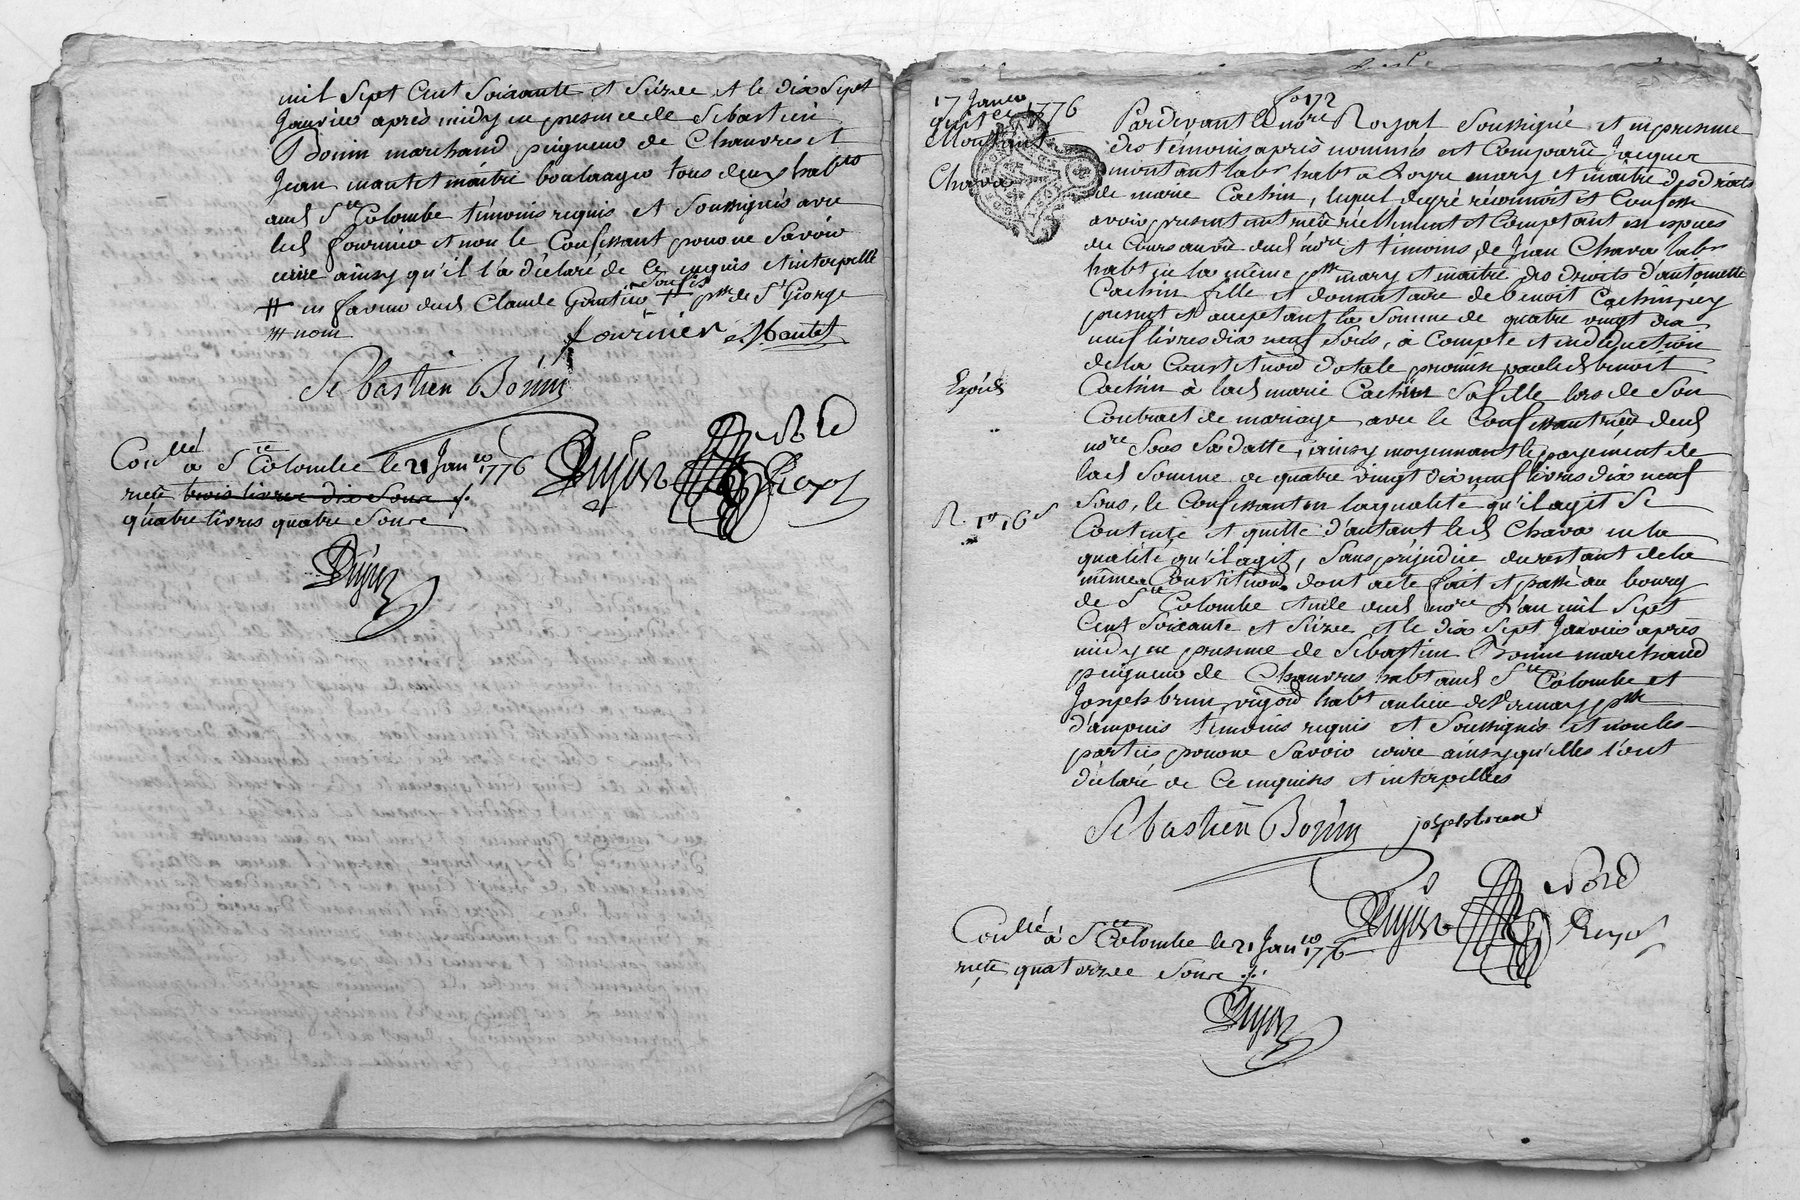 mil Sept Cent Soixante et Seizee et le dix Sept
Janvier apres midy en presence de Sebastien
Bonin marchand peigneur de Chanvres et
Jean mantet maitre boulanger tous deux habts
aud Ste Colombe témoins requis et Soussignés avec
led fournier et non le Confessant pour ne Savoir
ecrire ainsy qu'il l'a déclaré de ce requis et interpellé
# en faveur dud Claude # psse de St George
# nom
fournier Mantet
Sebastien Bonin
Conllé
à Ste Colombe le 21 Janer 1776
reçu trois livres dix Sours
quatre livres quatre Sours
Dujon No Re
Royal
Dujon
fo 172
17 Janer 1776
quitce
Montant
Chava
Pardevant le nore Royal Soussigné et en presence
des témoins après nommés est Comparu Jacques
montant labr habt à mary et maitre des droits
de marie Cachin, lequel de gré reconnoit et Confesse
avoir presentement reçu réellement et Comptant en especes
de Cours au vû dud nore et témoins de Jean Chava labr
habt en la même psse mary et maitre des droits d'antoinette
Cachin fille et donnataire de benoit Cachin, icy
present et acceptant la Somme de quatre vingt dix
neuf livres dix neuf Sols, à Compte et en déduction
de la Constitution dotale promise par led benoit
Cachin à lad marie Cachin Sa fille lors de Son
Contract de mariage avec le Confessant reçu dud
nore Sous Sa datte, ainsy moyennant le payement de
lad Somme de quatre vingt dix neuf livres dix neuf
Sous, le Confessant en la qualité qu'il agit Se
Contente et quitte d'autant led Chava en la
qualité qu'il agit, Sans préjudice du restant de la
même Constitution. dont acte fait et passé au bourg
de Ste Colombe etude dud nore L'an mil Sept
Cent Soixante et Seizee et le dix Sept Janvier après
midy en presence de Sebastien Bonin marchand
peigneur de Chanvres habt aud Ste Colombe et
Joseph brun vigon habt au lieu de psse
d'ampuis témoins requis et Soussignés et non les
parties pour ne Savoir ecrire ainsy qu'elles l'ont
déclaré de Ce enquises et interpellées
Expédié
R. 1o 16 s
Sebastien Bonin joseph brun
Dujon No Re
Royal
Conllé
à Ste Colombe le 21 Janer 1776
reçu quatorzee Sours
Dujon